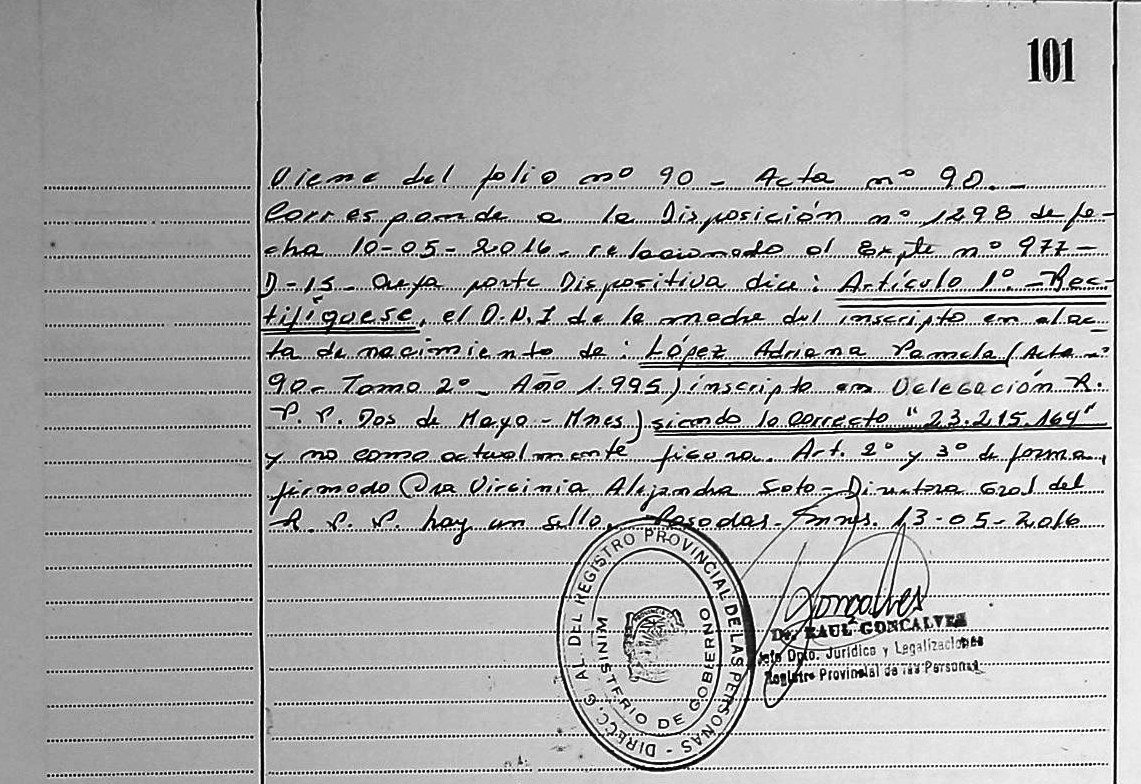 101
Viene del folio nº 90 - Acta nº 90. -
Corresponde a la Disposición nº 1298 de fe-
cha 10-05-2016. relacionado al Expte nº 977-
D-15- cuya parte Dispositiva dice: Artículo 1º. - Rec-
tifíquese, el D.N.I de la madre del inscripto en el ac-
ta de nacimiento de: López Adriana Pamela (Acta nº
90- Tomo 2º - Año 1.995) inscripto en Delegación R.
P. P. Dos de Mayo - Mnes) siendo lo correcto "23.215.164"
y no como actualmente figura. Art. 2º y 3º de forma,
firmado Dra Virginia Alejandra Soto - Directora Gral del
R. P. P. hay un sello. Posadas - Mnes. 13-05-2016
DIRECC. G. AL DEL REGISTRO PROVINCIAL DE LAS PERSONAS -
MINISTERIO DE GOBIERNO
Gonçalves
Dr. RAUL GONCALVES
Jefe Dpto. Jurídico y Legalizaciones
Registro Provincial de las Personas